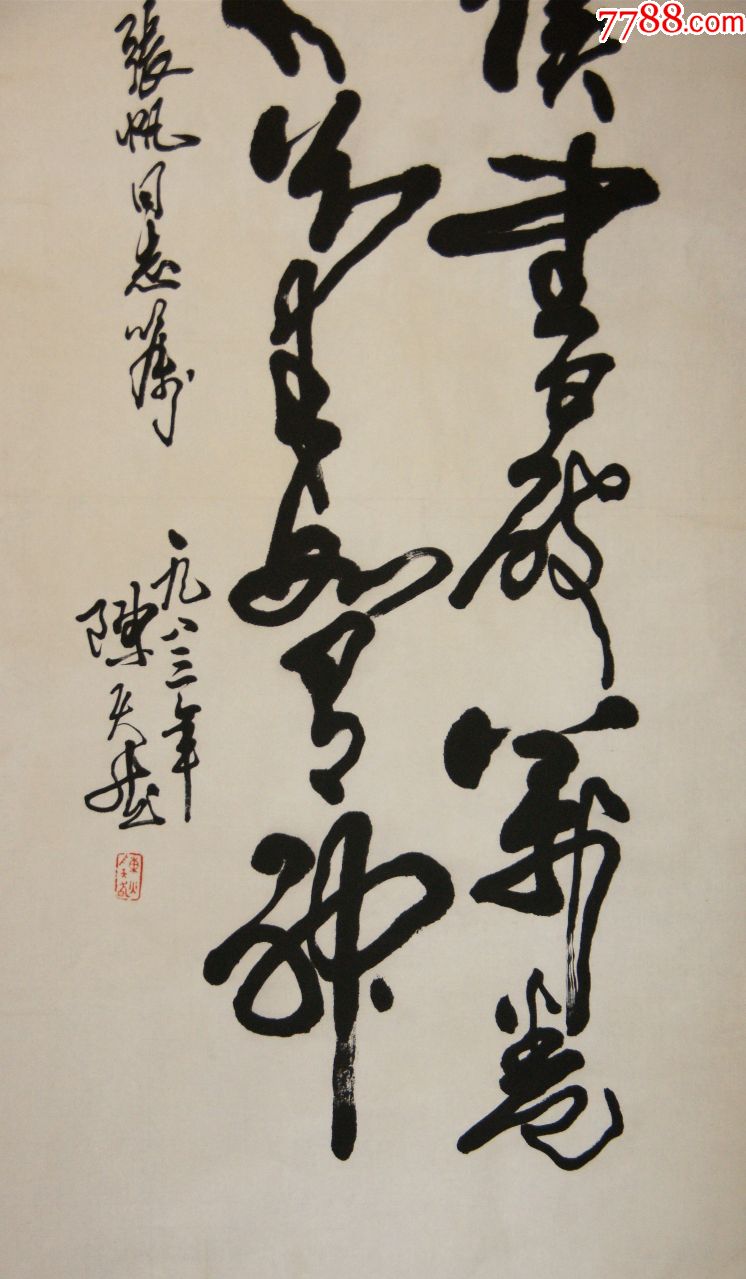 7788.com
讀書破萬卷
下筆如有神
張帆同志囑
一九八三年
陳天